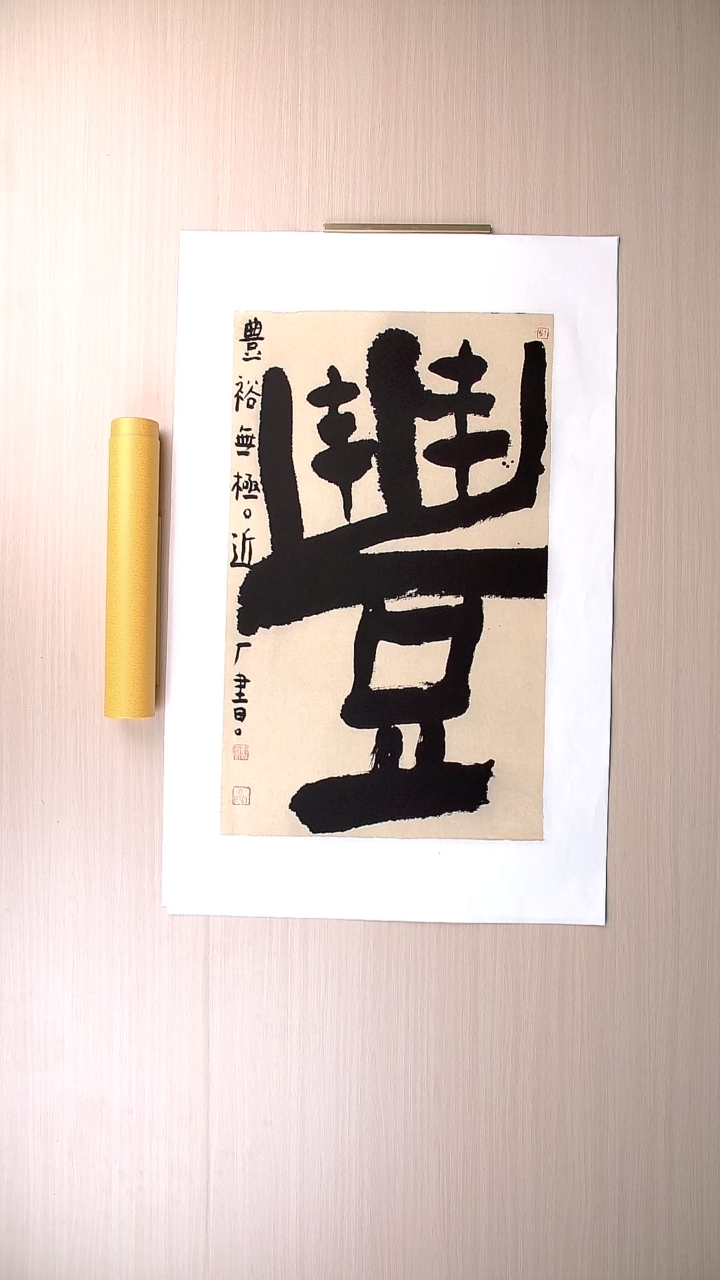 豐
豐裕無極。近厂書。